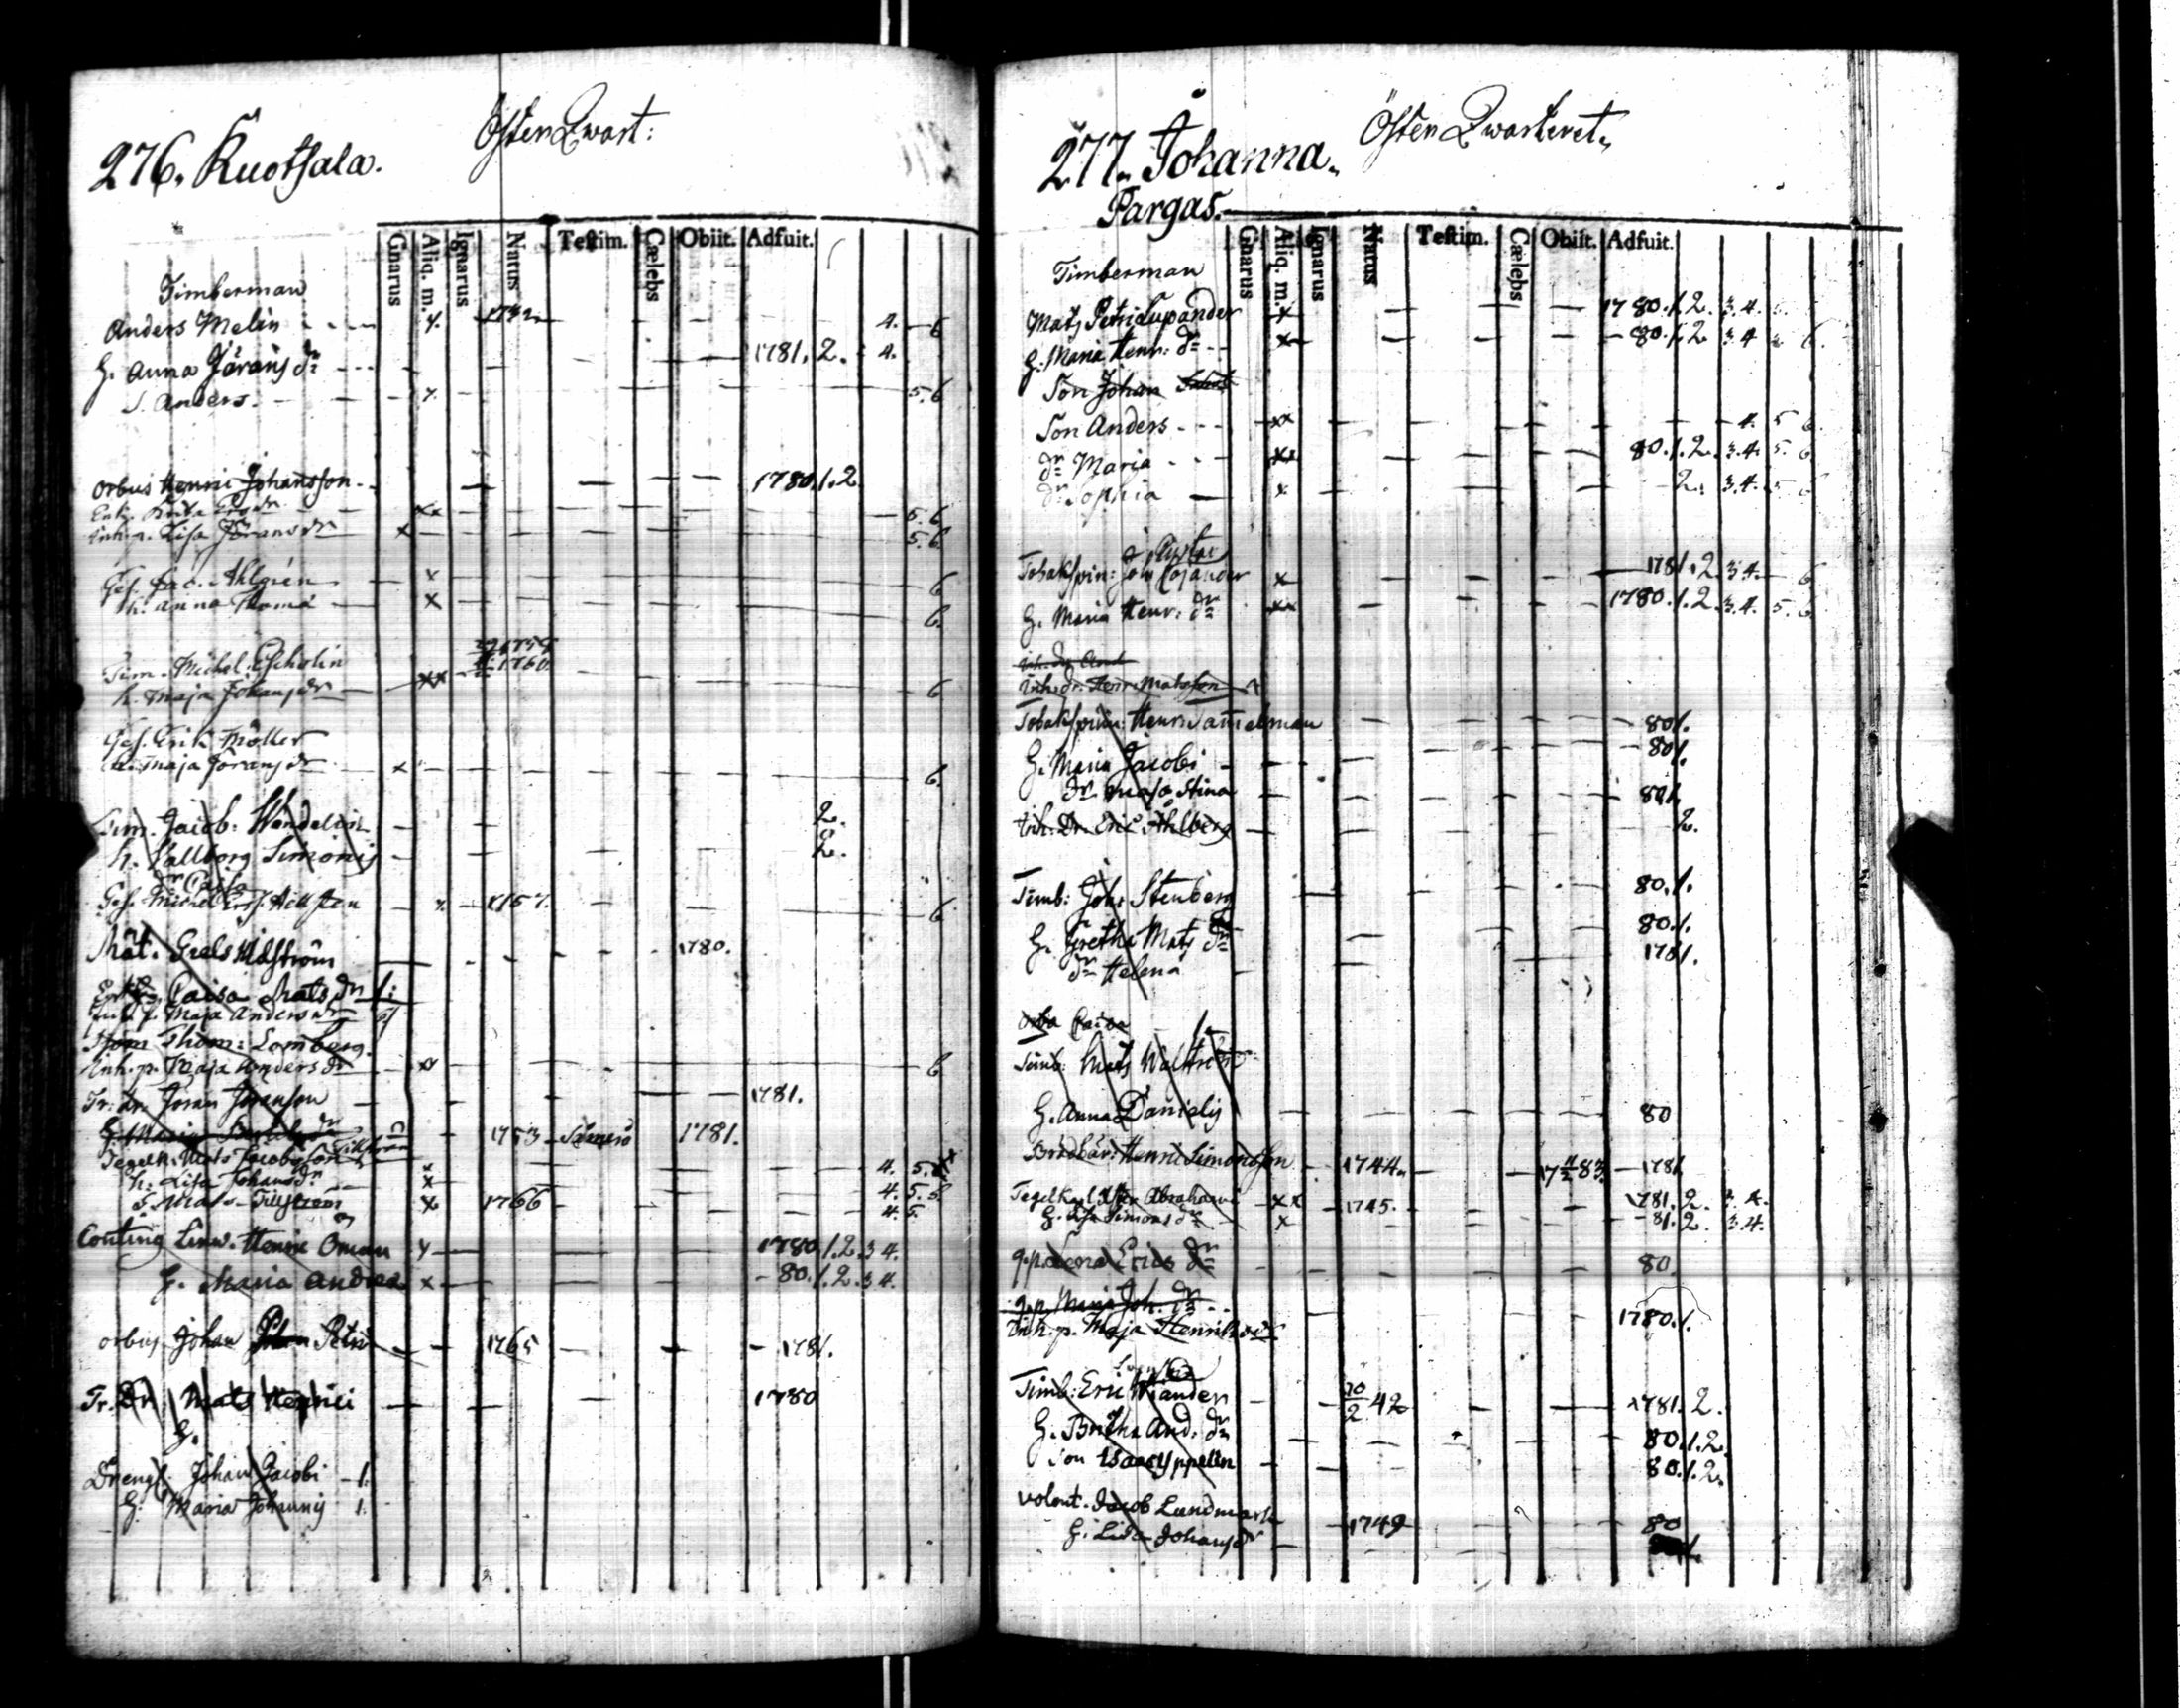 276. Kuotsala.
Öster Qwart:
Gnarus Aliq. m. Ignarus Natus Testim. Cælebs Obiit. Adfuit.
Timberman
Anders Melin x. 1742 4. 6
H. Anna Jörans dr 1781. 2. 4.
S. Anders. x. 5. 6
Orbus Henric Johansson 1780. 1. 2
Enk. xx 5. 6
Inh. p. Lisa Jöransdr x 5. 6.
Ges. Jac. Ahlgrén x 6
h. Anna Thomæ x 6.
Tim. Michel 1760.
h. Maja Johansdr xx 6
Ges. Erik Möller
h. Maja Göransdr x 6.
Tim. Jacob: Wendelin 2.
h. Wallborg Simonis 2.
dr Caisa
Ges. Michel x. 1757. 6
Måt. Grels 1780.
Caisa Mats dr 1:
Inh. p. Maja Andersdr
Thom: Lomberg.
Inh. p. Maja Anders dr xx 6
Tr: dr. Jöran Jöransson 1781.
H. Maria 1753 1781.
Tegelk. Mats Jacobsson 4. 5. 6
h. Lisa Johansdr x 4. 5.
S. Mats x 1766 4. 5.
Conting Henric Oman x 1780. 1. 2. 3 4.
H. Maria Andreæ x 80. 1. 2. 3 4.
orbus Johan Petri 1765 1781.
Tr. Dr. Mats Henrici 1780
H.
Dreng. Johan Jacobi 1.
H. Maria Johannis 1.
277. Johanna.
Pargas.
Öster Qwarteret.
Gnarus Aliq. m. Ignarus Natus Testim. Cælebs Obiit. Adfuit.
Timberman
Mats Petri Lupander x 1780. 1. 2. 3. 4.
H. Maria Henr: dr x 80. 1. 2. 3. 4 6.
Son Johan
Son Anders xx 4. 5 6.
dr Maria xx 80. 1. 2. 3. 4. 5. 6
dr Sophia x 2. 3. 4. 5 6
Tobakspin: Joh. Cajander x 1781. 2. 3 4. 6
H. Maria Henr: dr xx 1780. 1. 2. 3. 4. 5. 6
Inh. dr And
Inh. dr. Henr. Matsson
Tobakspinn: Henric 80 1.
H. Maria Jacobi 80 1.
dr Maja Stina 80 1.
Inh: Dr. Eric Ahlberg 2.
Timb: Joh: Stenberg 80. 1.
H. Gretha Mats dr 80. 1.
dr Helena 1781.
Orba Caisa
Timb: Mats 1.
H. Anna Danielis 80
Brådbär: Henric Simonsson 1744. 17 11/2 83. 1781
Tegelkarl Abrahami xx 1745. 1781. 2. 3. 4.
H. Simons dr x 81. 2. 3. 4.
q. p. Lena Erics dr 80.
q. p. Maria Joh. dr 1780. 1.
Inh. p. Maja Henriksdr
Timb: Eric 20/2 42 1781. 2.
H. Britha And: dr 80. 1. 2.
Son Isaac Yppelin 80. 1. 2.
Volont. Jacob Lundmark 1749 80
H. Lisa Johansdr 1.